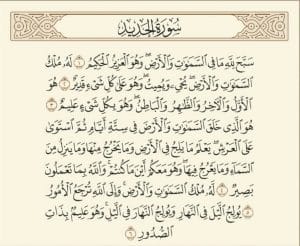 سُورَةُ الحَدِيدِ
سَبَّحَ لِلَّهِ مَا فِي السَّمَوَاتِ وَالْأَرْضِ وَهُوَ الْعَزِيزُ الْحَكِيمُ ١ لَهُ مُلْكُ
السَّمَوَاتِ وَالْأَرْضِ يُحْيِي وَيُمِيتُ وَهُوَ عَلَى كُلِّ شَيْءٍ قَدِيرٌ ٢ هُوَ
الْأَوَّلُ وَالْآخِرُ وَالظَّاهِرُ وَالْبَاطِنُ وَهُوَ بِكُلِّ شَيْءٍ عَلِيمٌ ٣
هُوَ الَّذِي خَلَقَ السَّمَوَاتِ وَالْأَرْضَ فِي سِتَّةِ أَيَّامٍ ثُمَّ اسْتَوَى
عَلَى الْعَرْشِ يَعْلَمُ مَا يَلِجُ فِي الْأَرْضِ وَمَا يَخْرُجُ مِنْهَا وَمَا يَنزِلُ مِنَ
السَّمَاءِ وَمَا يَعْرُجُ فِيهَا وَهُوَ مَعَكُمْ أَيْنَ مَا كُنتُمْ وَاللَّهُ بِمَا تَعْمَلُونَ
بَصِيرٌ ٤ لَهُ مُلْكُ السَّمَوَاتِ وَالْأَرْضِ وَإِلَى اللَّهِ تُرْجَعُ الْأُمُورُ
٥ يُولِجُ اللَّيْلَ فِي النَّهَارِ وَيُولِجُ النَّهَارَ فِي اللَّيْلِ وَهُوَ عَلِيمٌ بِذَاتِ
الصُّدُورِ ٦